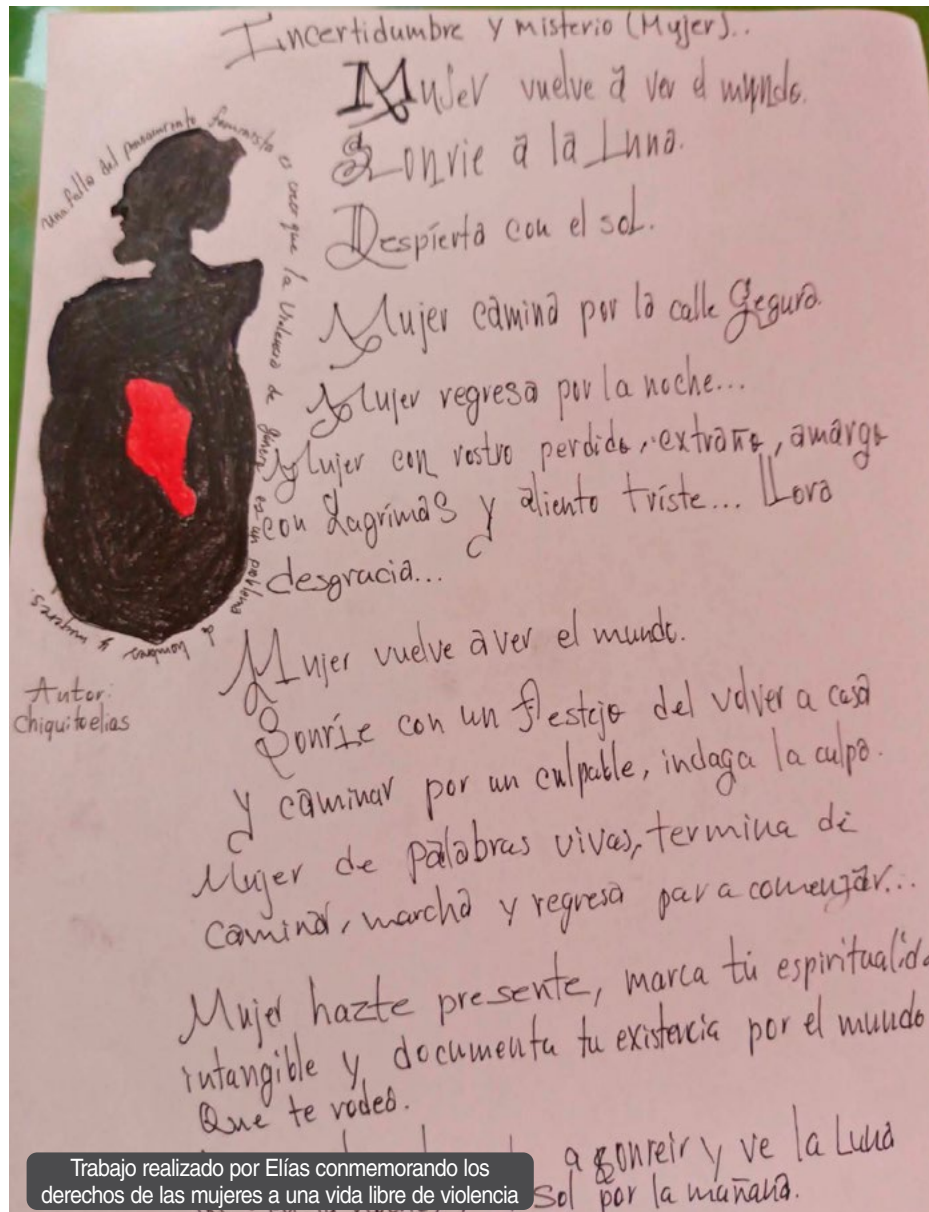 Incertidumbre y misterio (Mujer)..
Mujer vuelve a ver el mundo.
Sonrie a la Luna.
Despierta con el sol.
Mujer camina por la calle Segura
Mujer regresa por la noche...
Mujer con rostro perdido, extraño, amargo
con Lagrimas y aliento triste... Llora
desgracia...
Mujer vuelve a ver el mundo.
Sonríe con un festejo del volver a casa
y caminar por un culpable, indaga la culpa.
Mujer de palabras vivas, termina de
caminar, marcha y regresa para comenzar...
Mujer hazte presente, marca tú espiritualida
intangible y documenta tu existencia por el mundo
Que te rodea.
a sonreir y ve la Luna
sol por la mañana.
una falla del pensamiento feminista es creer que la violencia de género es un problema de hombres y mujeres.
Autor:
Chiquitoelias
Trabajo realizado por Elías conmemorando los
derechos de las mujeres a una vida libre de violencia